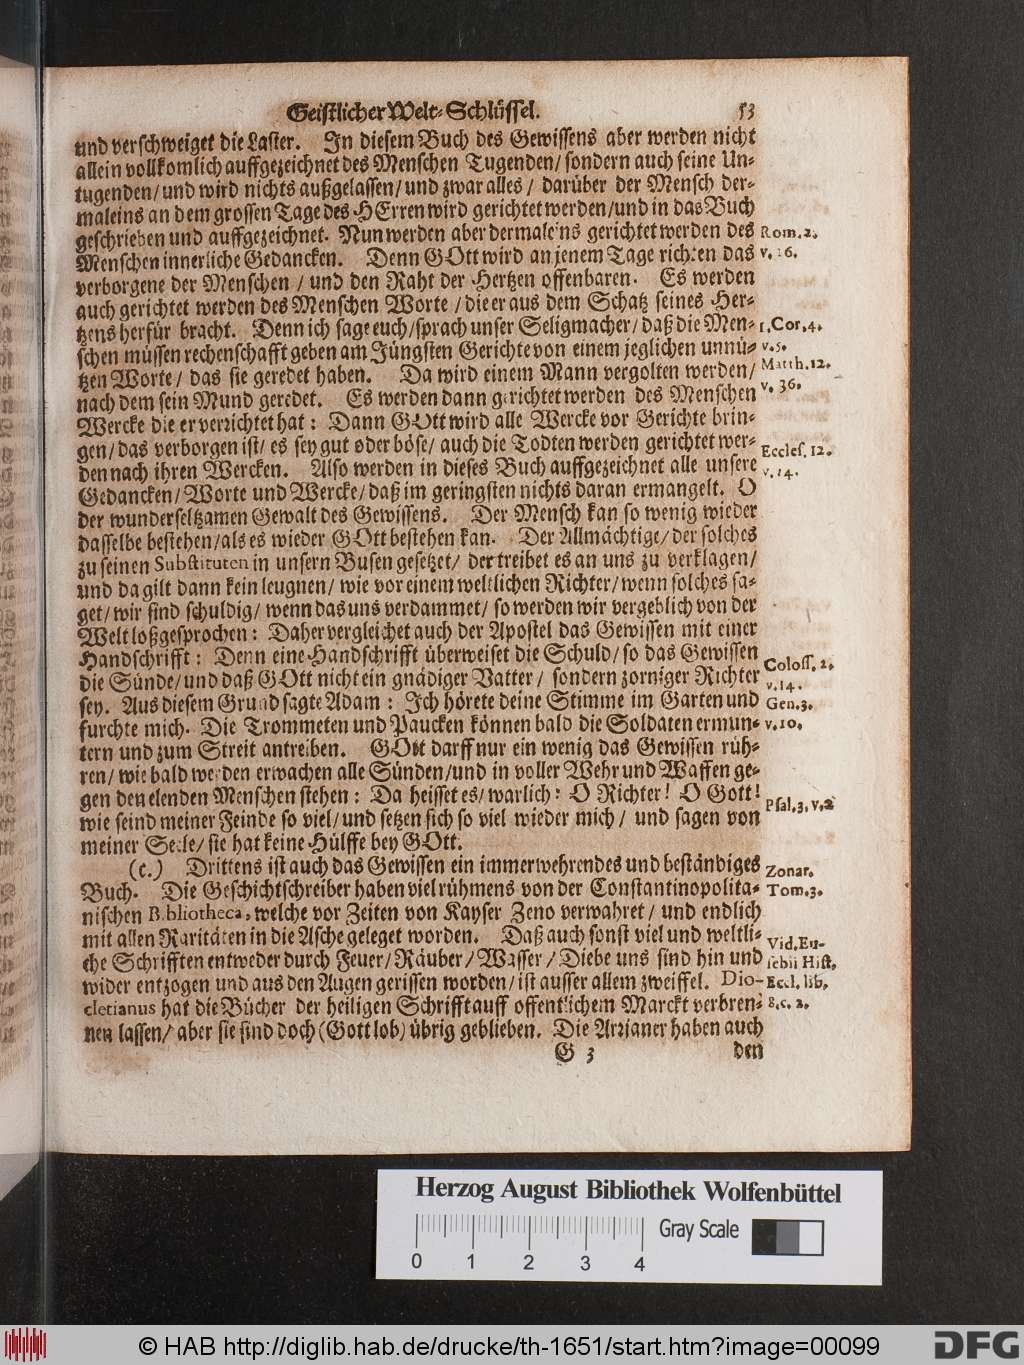 Geistlicher Welt-Schlüssel. 53
und verschweiget die Laster. In diesem Buch des Gewissens aber werden nicht
allein vollkomlich auffgezeichnet des Menschen Tugenden/ sondern auch seine Un-
tugenden/ und wird nichts außgelassen/ und zwar alles/ darüber der Mensch der-
maleins an dem grossen Tage des HErren wird gerichtet werden/ und in das Buch
geschrieben und auffgezeichnet. Nun werden aber dermaleins gerichtet werden des
Rom. 2.
Menschen innerliche Gedancken. Denn GOtt wird an jenem Tage richten das
v. 16.
verborgene der Menschen / und den Raht der Hertzen offenbaren. Es werden
auch gerichtet werden des Menschen Worte / die er aus dem Schatz seines Her-
tzens herfür bracht. Denn ich sage euch/ sprach unser Seligmacher/ daß die Men-
1. Cor. 4.
schen müssen rechenschafft geben am Jüngsten Gerichte von einem jeglichen unnü-
v. 5.
tzen Worte/ das sie geredet haben. Da wird einem Mann vergolten werden/
Matth. 12.
nach dem sein Mund geredet. Es werden dann gerichtet werden des Menschen
v. 36.
Wercke die er verrichtet hat: Dann GOtt wird alle Wercke vor Gerichte brin-
gen/ das verborgen ist/ es sey gut oder böse/ auch die Todten werden gerichtet wer-
Eccles. 12.
den nach ihren Wercken. Also werden in dieses Buch auffgezeichnet alle unsere
v. 14.
Gedancken/ Worte und Wercke/ daß im geringsten nichts daran ermangelt. O
der wunderseltzamen Gewalt des Gewissens. Der Mensch kan so wenig wieder
dasselbe bestehen/ als es wieder GOtt bestehen kan. Der Allmächtige/ der solches
zu seinen Substituten in unsern Busen gesetzet/ der treibet es an uns zu verklagen/
und da gilt dann kein leugnen/ wie vor einem weltlichen Richter/ wenn solches sa-
get/ wir sind schuldig/ wenn das uns verdammet/ so werden wir vergeblich von der
Welt loßgesprochen: Daher vergleichet auch der Apostel das Gewissen mit einer
Handschrifft: Denn eine Handschrifft überweiset die Schuld/ so das Gewissen
Coloss. 2.
die Sünde/ und daß GOtt nicht ein gnädiger Vatter/ sondern zorniger Richter
v. 14.
sey. Aus diesem Grund sagte Adam: Ich hörete deine Stimme im Garten und
Gen. 3.
furchte mich. Die Trommeten und Paucken können bald die Soldaten ermun-
v. 10.
tern und zum Streit antreiben. GOtt darff nur ein wenig das Gewissen rüh-
ren/ wie bald werden erwachen alle Sünden/ und in voller Wehr und Waffen ge-
gen den elenden Menschen stehen: Da heisset es/ warlich: O Richter! O Gott!
Psal. 3. v. 2
wie seind meiner Feinde so viel/ und setzen sich so viel wieder mich/ und sagen von
meiner Seele/ sie hat keine Hülffe bey GOtt.
(c.) Drittens ist auch das Gewissen ein immerwehrendes und beständiges
Zonar.
Buch. Die Geschichtschreiber haben viel rühmens von der Constantinopolita-
Tom. 3.
nischen Bibliotheca, welche vor Zeiten von Kayser Zeno verwahret/ und endlich
mit allen Raritäten in die Asche geleget worden. Daß auch sonst viel und weltli-
Vid. Eu-
che Schrifften entweder durch Feuer/ Räuber/ Wasser/ Diebe uns sind hin und
sebii Hist.
wider entzogen und aus den Augen gerissen worden/ ist ausser allem zweiffel. Dio-
Eccl. lib.
cletianus hat die Bücher der heiligen Schrifft auff offentlichem Marckt verbren-
8. c. 2.
nen lassen/ aber sie sind doch (Gott lob) übrig geblieben. Die Arrianer haben auch
G 3 den
Herzog August Bibliothek Wolfenbüttel
Gray Scale
0 1 2 3 4
© HAB http://diglib.hab.de/drucke/th-1651/start.htm?image=00099
DFG